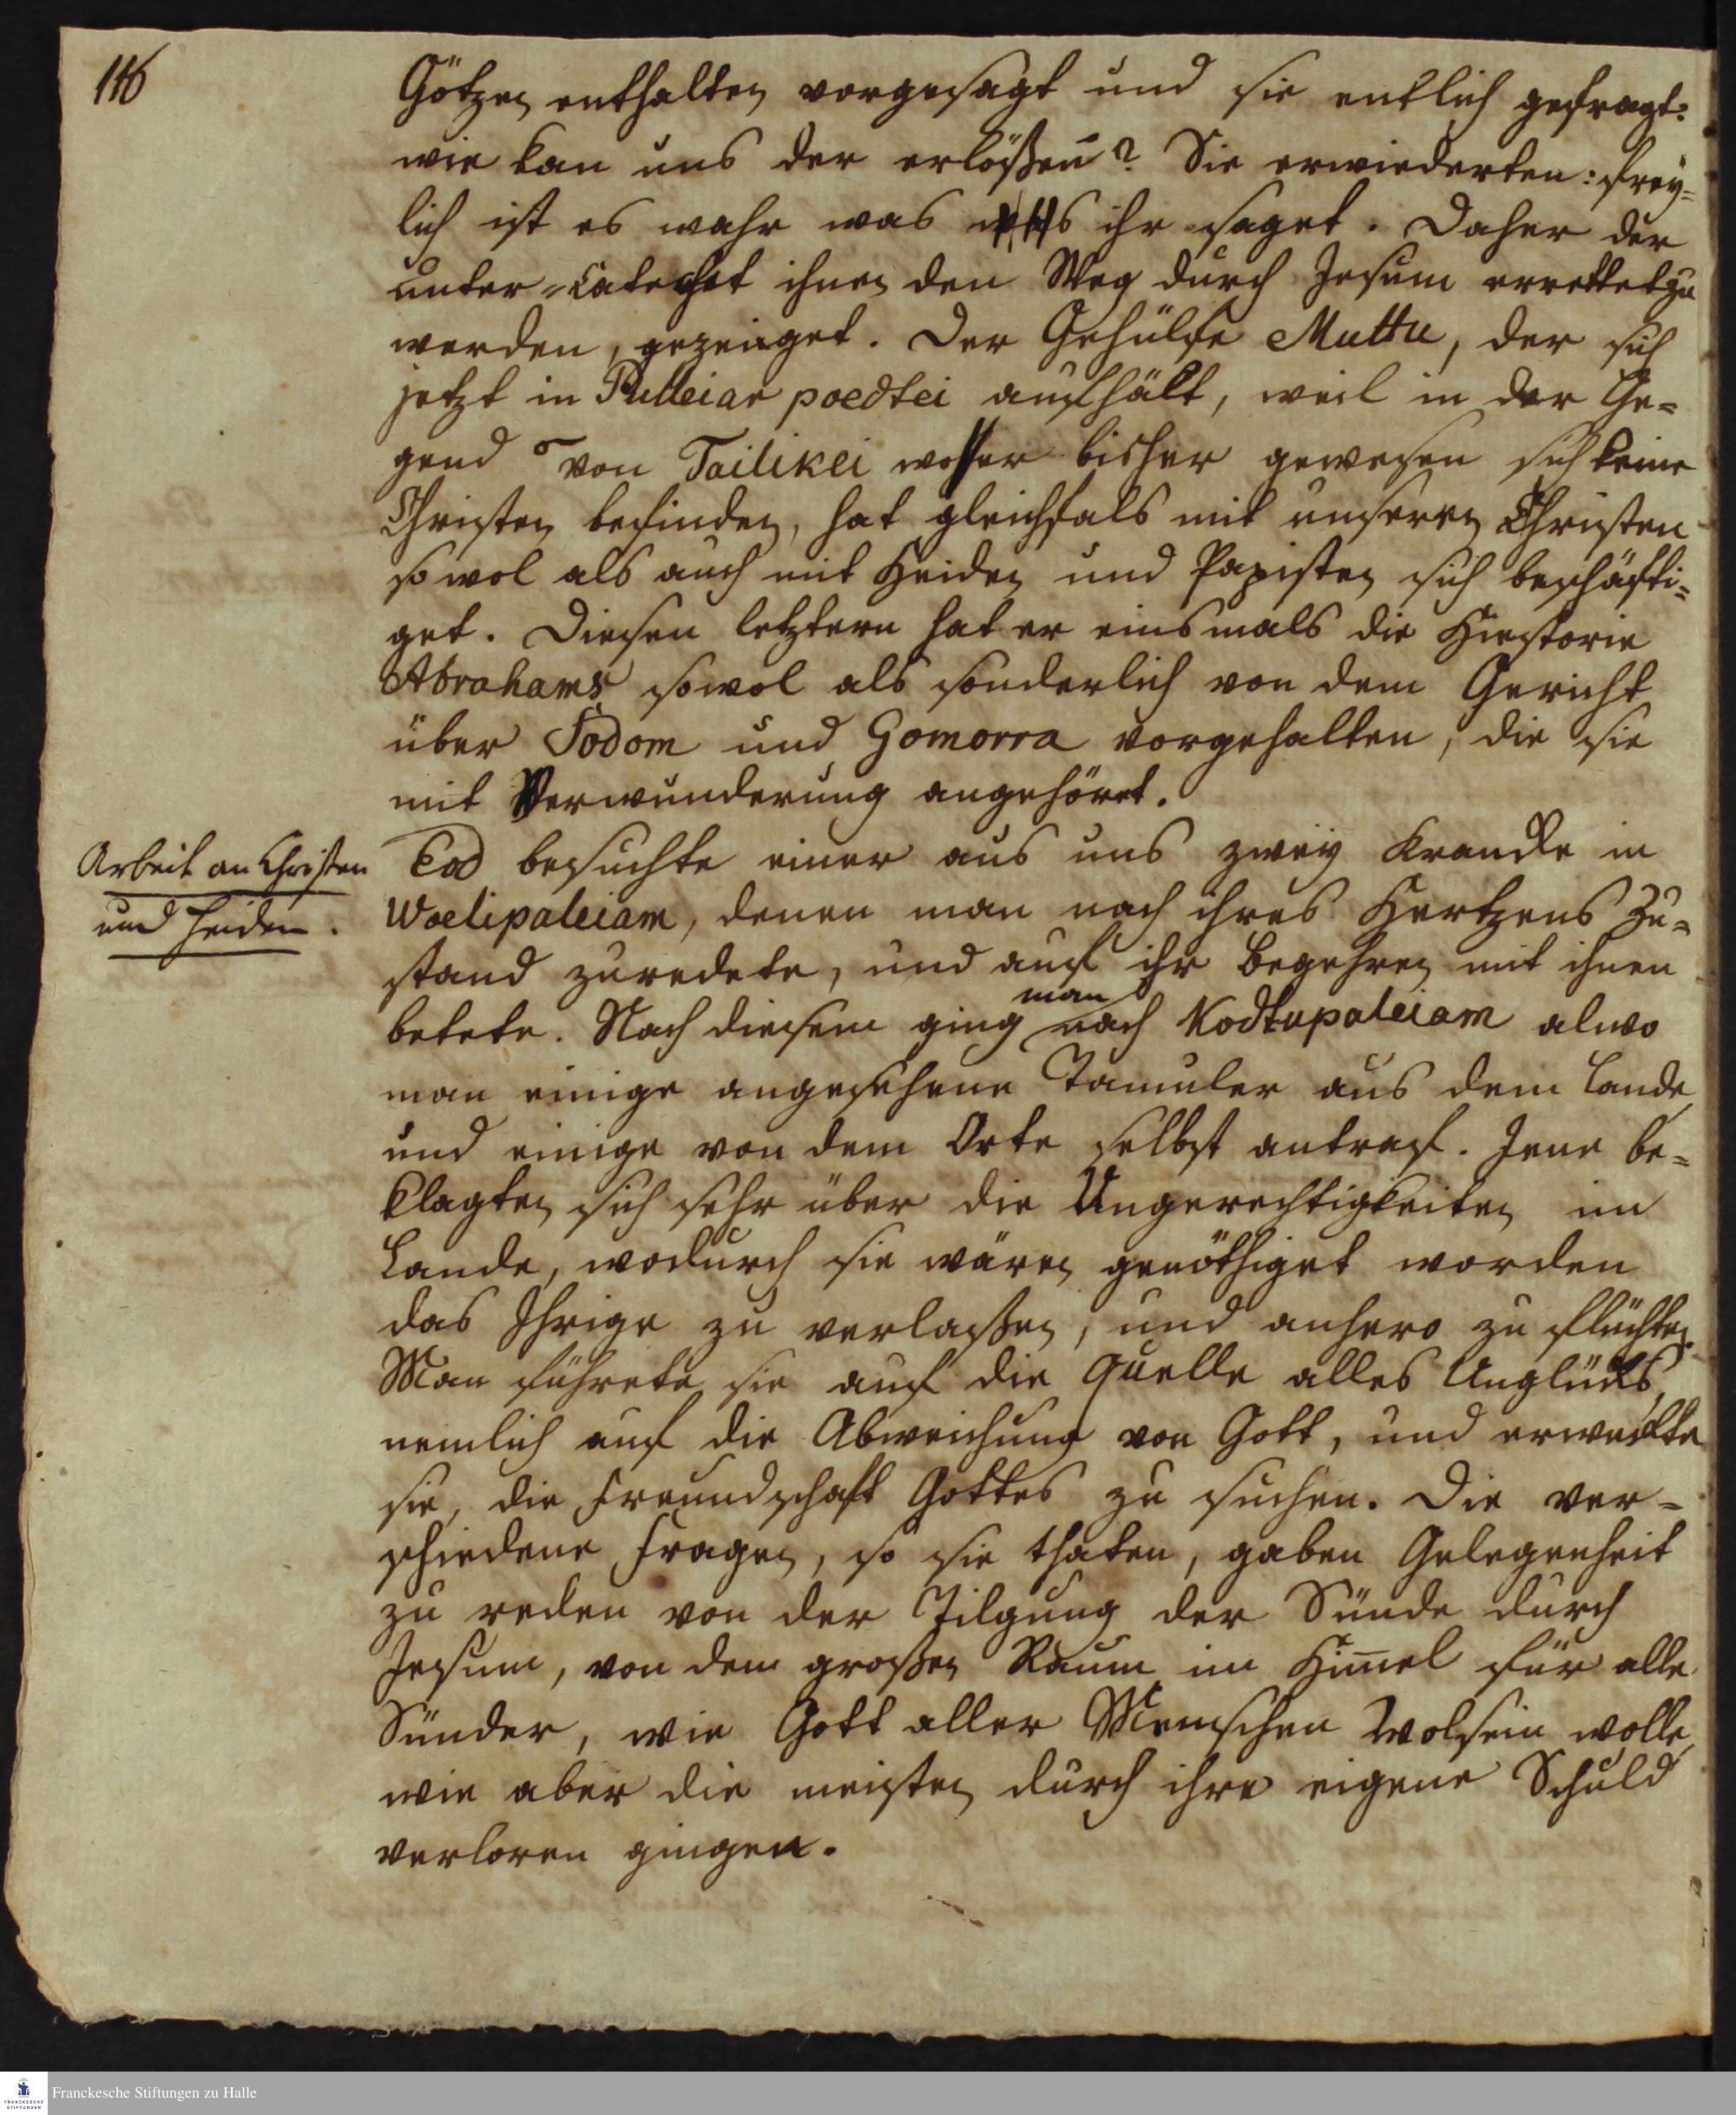 116
Götzen enthalten vorgesagt und sie entlich gefragt:
wie kan uns der erlößen? Sie erwiederten: frey=
lich ist es wahr was ihr saget. Daher der
unter-Catechet ihnen den Weg durch Jesum errettet zu
werden, gezeiget. Der Gehülfe Muttu, der sich
jetzt in Pulleiar poedtei aufhält, weil in der Ge=
gend von Tailikei wo er bisher gewesen sich keine
Christen befinden, hat gleichfals mit unsern Christen
so wol als auch mit Heiden und Papisten sich beschäfti=
get. Diesen letztern hat er einsmals die Historie
Abrahams sowol als sonderlich von dem Gericht
über Sodom und Gomorra vorgehalten, die sie
mit Verwunderung angehöret.
Arbeit an Christen
und Heiden.
Eod besuchte einer aus uns zwey Krancke in
Woelipaleiam, denen man nach ihres Hertzens Zu=
stand zuredete, und auf ihr Begehren mit ihnen
betete. Nach diesem ging man nach Kodtupaleiam alwo
man einige angesehene Tamuler aus dem Lande,
und einige von dem Orte selbst antraf. Jene be=
klagten sich sehr über die Ungerechtigkeiten im
Lande, wodurch sie wären genöthiget worden
das Ihrige zu verlaßen, und anhero zu flüchten.
Man führete sie auf die Quelle alles Unglücks,
nemlich auf die Abweichung von Gott, und erweckte
sie, die Freundschaft Gottes zu suchen. Die ver=
schiedene Fragen, so sie thaten, gaben Gelegenheit
zu reden von der Tilgung der Sünde durch
Jesum, von dem großen Raum im Him̄el für alle
Sünder, wie Gott aller Menschen Wolsein wolle,
wie aber die meisten durch ihre eigene Schuld
verloren gingen.
FRANCKESCHE
STIFTUNGEN
Franckesche Stiftungen zu Halle